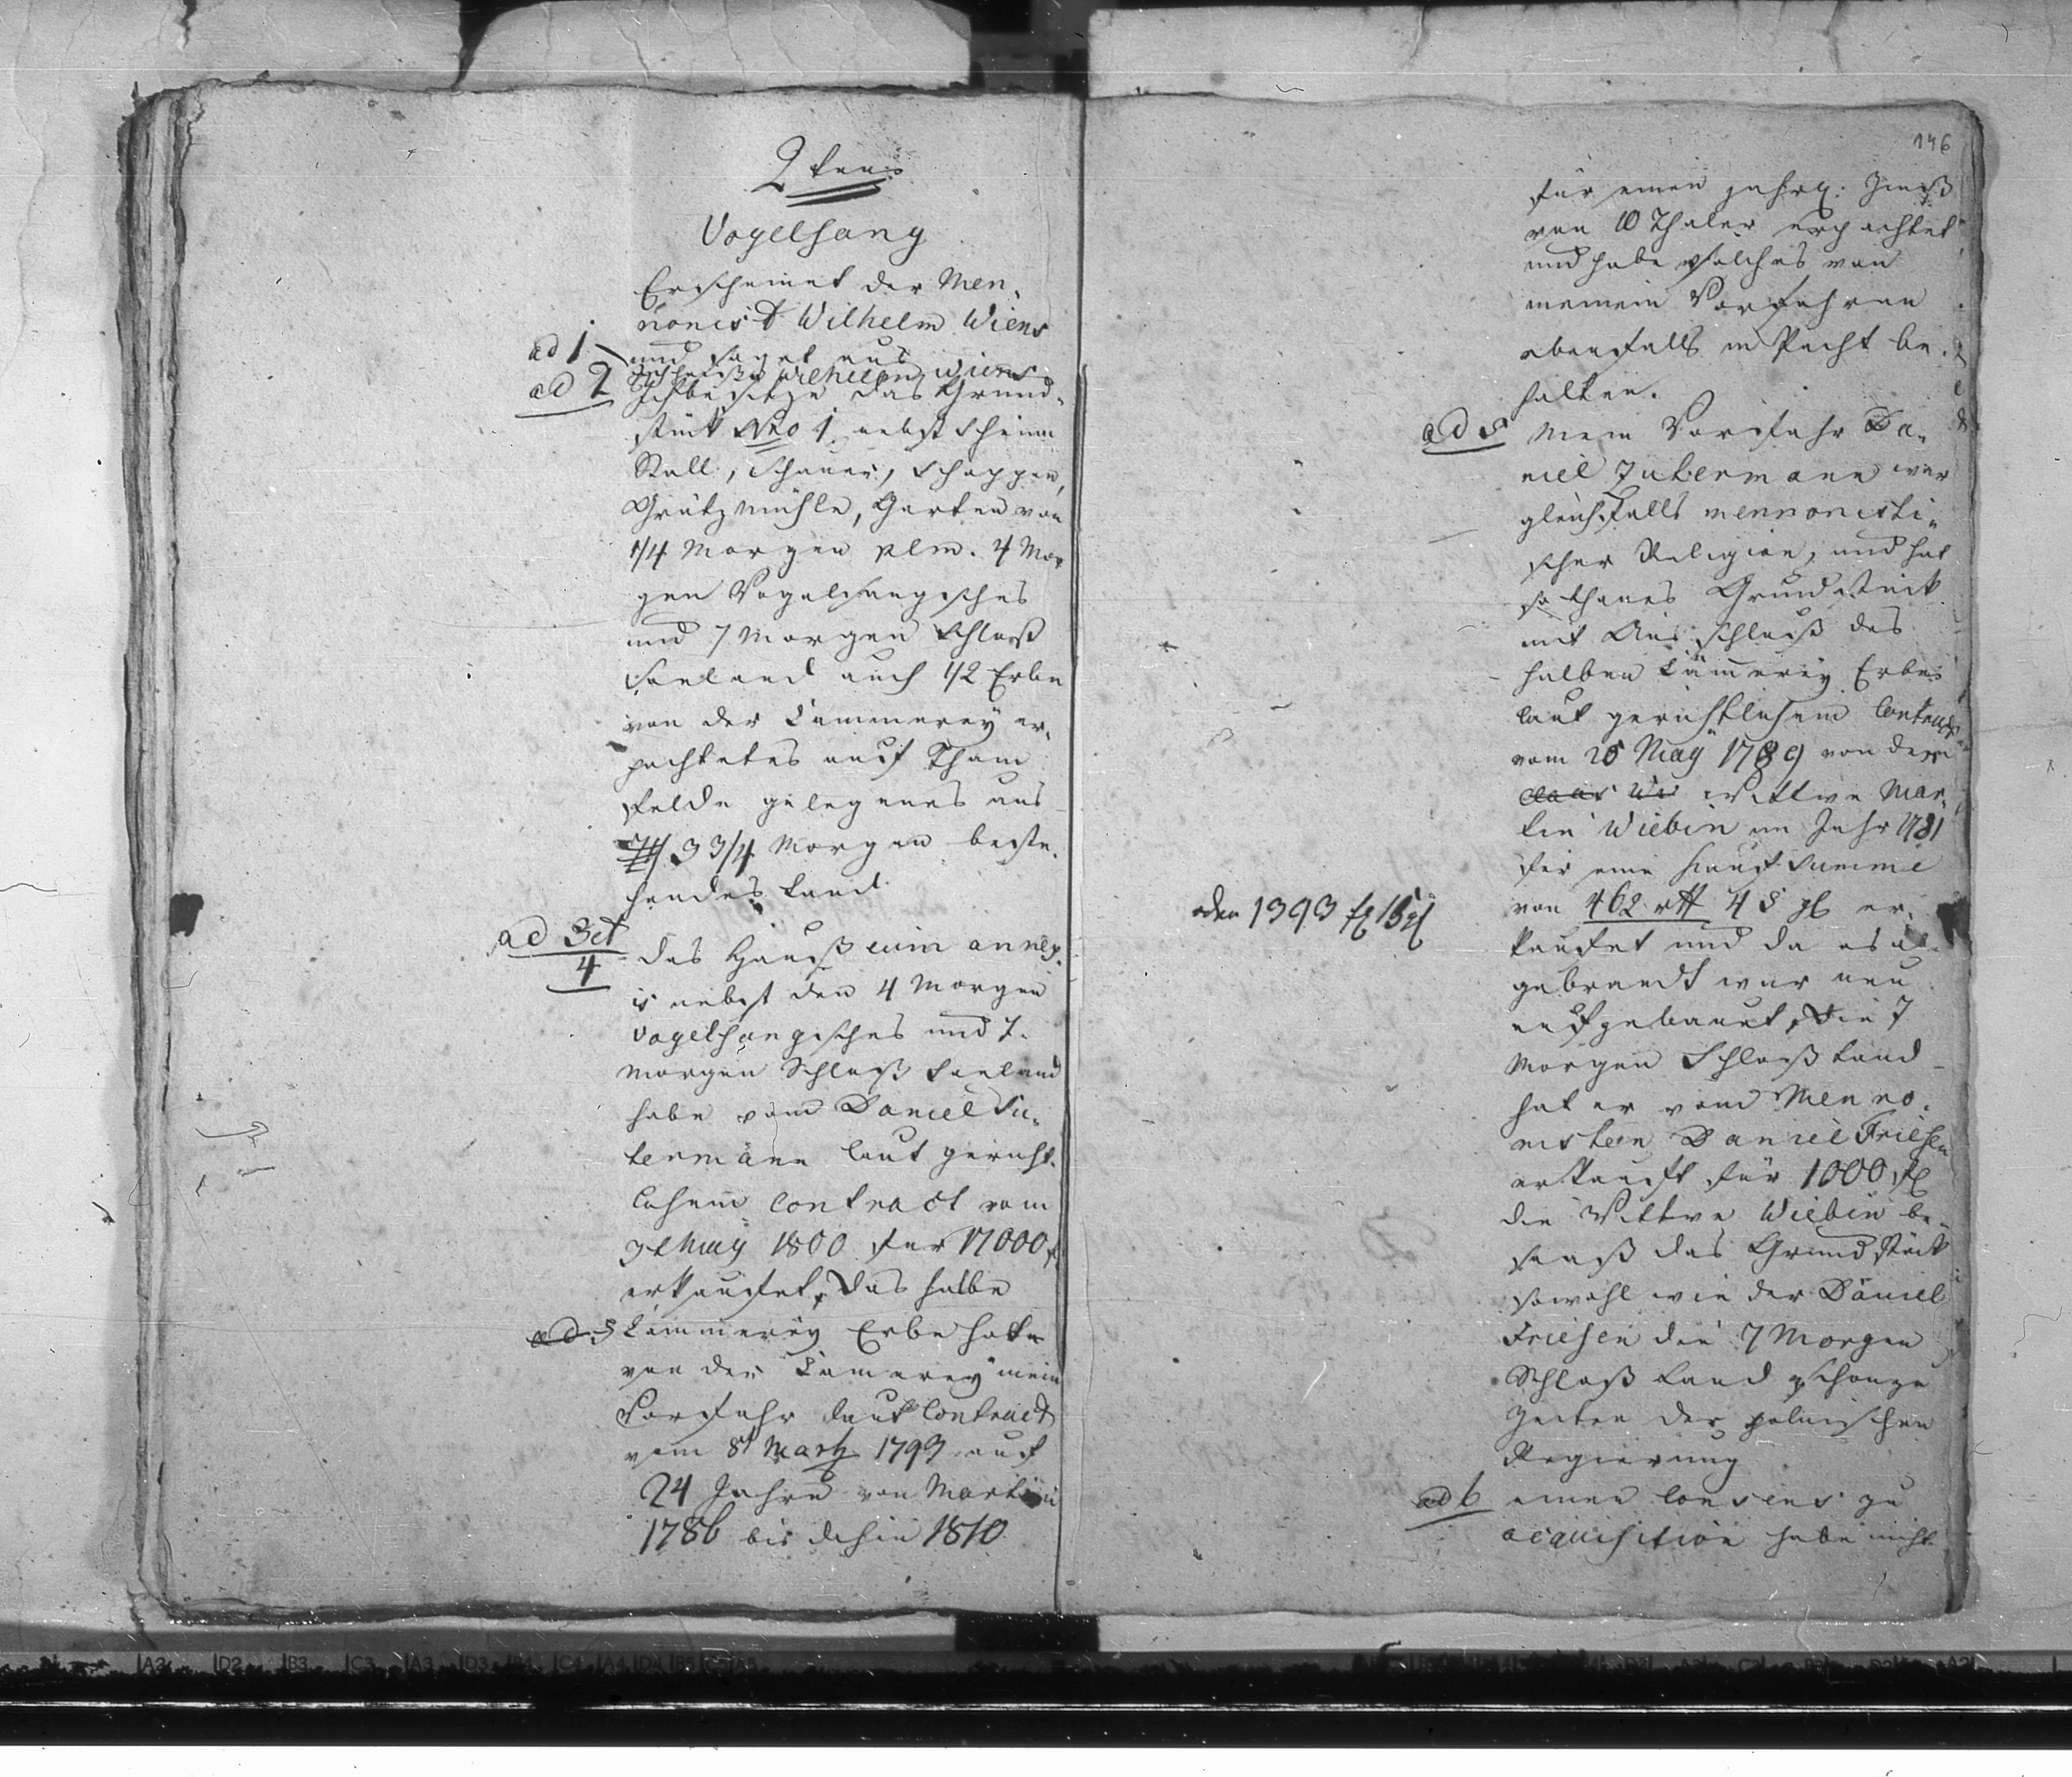 2tens
Vogelsang
Erscheinet der Men-
nonist Wilhelm Wiens
ad 1 und saget aus
Ich heiße Wilhelm Wiens
ad 2 Ich besitze das Grund-
stück Nro 1. nebst Scheun
Stall, Schauer, Schoppen,
Grützmühle, Garten von
1/4 Morgen plm. 4 Mor
gen Vogelsangisches
und 7 Morgen Schloß
Saeland auch 1/2 Erbe
von der Cammerey er-
pachtetes auf Tham
felde gelegenes aus
3 3/4 Morgen beste-
hendes Land.
ad 3 et
4
das Hauß cum annex-
is nebst den 4 Morgen
Vogelsangisches und 7.
Morgen Schloß Saeland
habe vom Daniel Su-
termann laut gericht-
lichem Contract vom
May 1800 für 17000 f
erkaufet, Das halbe
ad 5 Cämmerey Erbe hat
von der Cämerey mein
Vorfahr laut Contract
vom 8t Martz 1793 auf
24 Jahre von Martini
1786 bis dahin 1810
146
für einen jährl: Zinß
von 10 Thaler erpachtet
und habe solches von
meinem Vorfahren
ebenfalls in Pacht be-
halten.
ad 5 Mein Vorfahr Da-
niel Zutermann war
gleichfalls mennonisti-
scher Religion, und hat
sothanes Grundstück
mit Ausschluß des
halben Cämerey Erbes
laut gerichtlichem Contract
vom 25 May 1789 von der
Claas Wi Wittwe Mar-
tin Wiebin im Jahr 1781
für eine Kaufsumme
von 462 rtl 45 gl er-
oder 1393 fl 15 gl
kaufet und da es ab-
gebrandt war neu
aufgebauet, Die 7
Morgen Schloß Land
hat er vom Menno-
nisten Daniel Friesen
erkauft für 1000 fl
die Wittwe Wiebin be-
saaß das Grundstück
sowohl wie der Daniel
Friesen die 7 Morgen
Schloß Land schon zu
Zeiten der polnischen
Regierung
ad 6 einen Consens zu
acquisition habe nicht